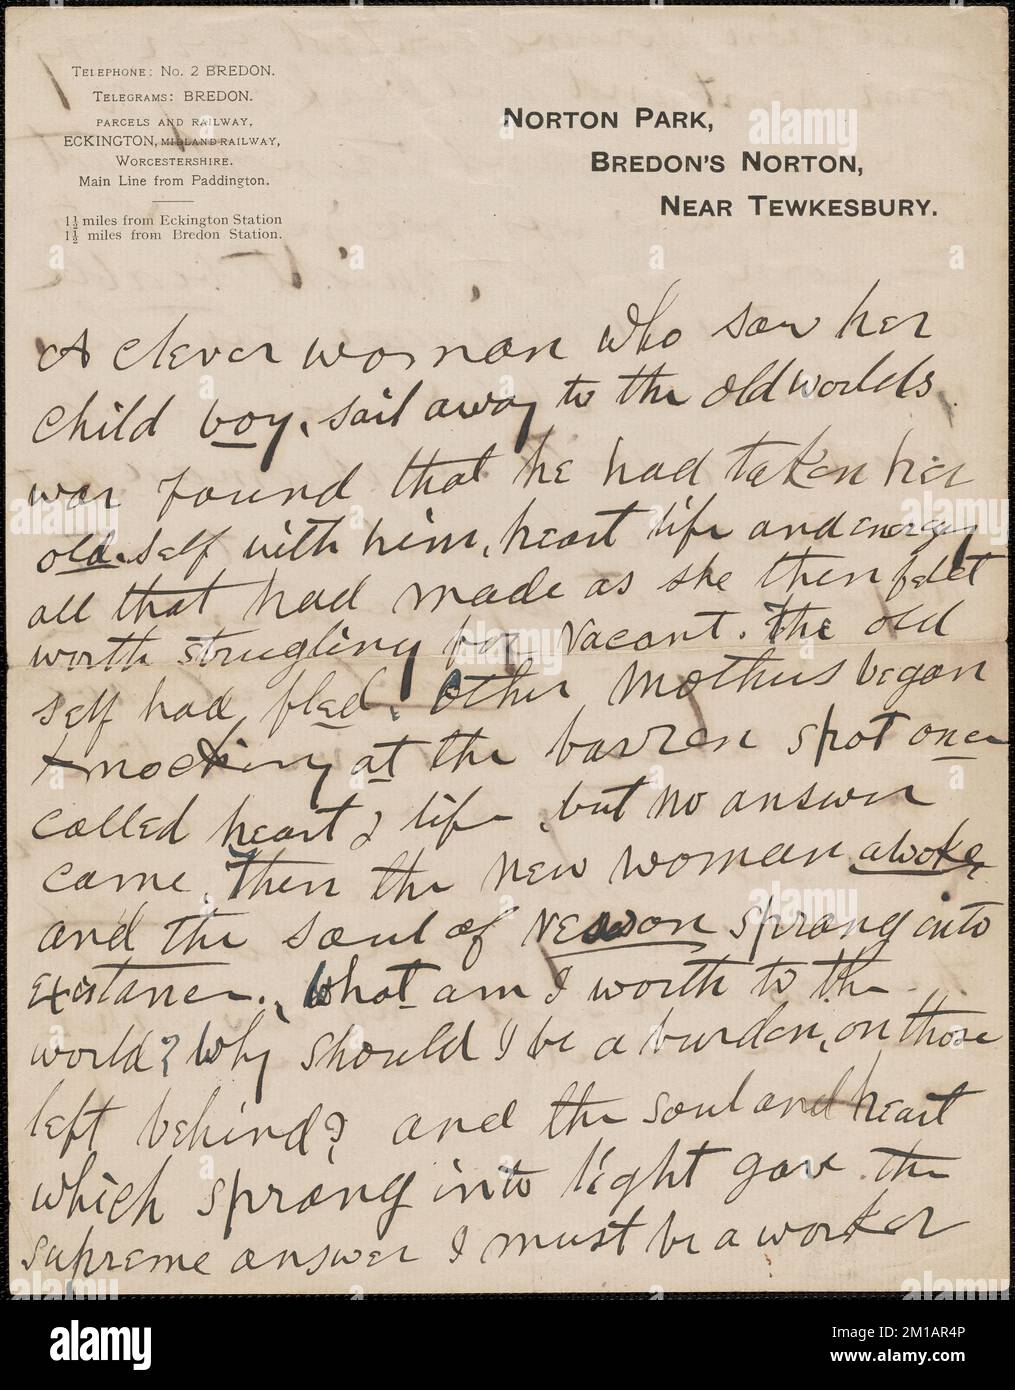 TELEPHONE: NO. 2 BREDON.
TELEGRAMS: BREDON.
PARCELS AND RAILWAY,
ECKINGTON, MIDLAND RAILWAY,
WORCESTERSHIRE.
Main Line from Paddington.
1½ miles from Eckington Station
1½ miles from Bredon Station.
NORTON PARK,
BREDON'S NORTON,
NEAR TEWKESBURY.
A clever woman who saw her
child boy, sail away to the old worlds.
was found that he had taken her
old self with him, heart life and energy
all that had made as she then felt
worth strugling for vacant. The old
self had fled. Other Mothers began
knocking at the barren spot once
called heart & life, but no answer
came. Then the new woman awoke
and the soul of sprang into
existance. What am I worth to the
world? Why should I be a burden, on those
left behind? and the soul and heart
which sprang into light gave the
supreme answer I must be a worker
alamy
Image ID: 2M1AR4P
www.alamy.com